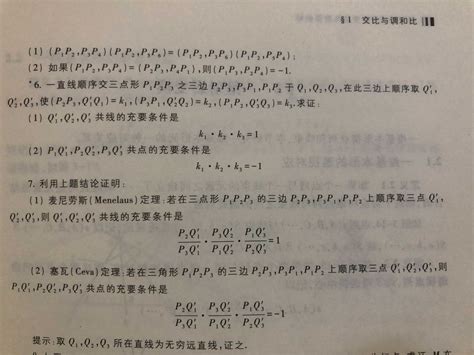 §1 交比与调和比
(1) (P₁P₂,P₃P₄)(P₁P₂,P₄P₆)=(P₁P₂,P₃P₆)(P₁P₂,P₃P₄);
(2) 如果(P₁P₂,P₃P₄)=(P₂P₃,P₄P₁),则(P₁P₃,P₂P₄)=-1.
*6. 一直线顺序交三点形 P₁P₂P₃ 之三边 P₂P₃,P₃P₁,P₁P₂ 于 Q₁,Q₂,Q₃,在此三边上顺序取 Q′₁,
Q′₂,Q′₃,使(P₂P₃,Q′₁Q₁)=k₁,(P₃P₁,Q′₂Q₂)=k₂,(P₁P₂,Q′₃Q₃)=k₃.求证:
(1) Q′₁,Q′₂,Q′₃ 共线的充要条件是
k₁·k₂·k₃=1
(2) P₁Q′₁,P₂Q′₂,P₃Q′₃ 共点的充要条件是
k₁·k₂·k₃=-1
7. 利用上题结论证明:
(1) 麦尼劳斯(Menelaus)定理:若在三点形 P₁P₂P₃ 的三边 P₂P₃,P₃P₁,P₁P₂ 上顺序取三点 Q′₁,
Q′₂,Q′₃,则 Q′₁,Q′₂,Q′₃ 共线的充要条件是
P₂Q′₁/P₃Q′₁ · P₃Q′₂/P₁Q′₂ · P₁Q′₃/P₂Q′₃ =1
(2) 塞瓦(Ceva)定理:若在三角形 P₁P₂P₃ 的三边 P₂P₃,P₃P₁,P₁P₂ 上顺序取三点 Q′₁,Q′₂,Q′₃,则
P₁Q′₁,P₂Q′₂,P₃Q′₃ 共点的充要条件是
P₂Q′₁/P₃Q′₁ · P₃Q′₂/P₁Q′₂ · P₁Q′₃/P₂Q′₃ =-1
提示:取 Q₁,Q₂,Q₃ 所在直线为无穷远直线,证之.